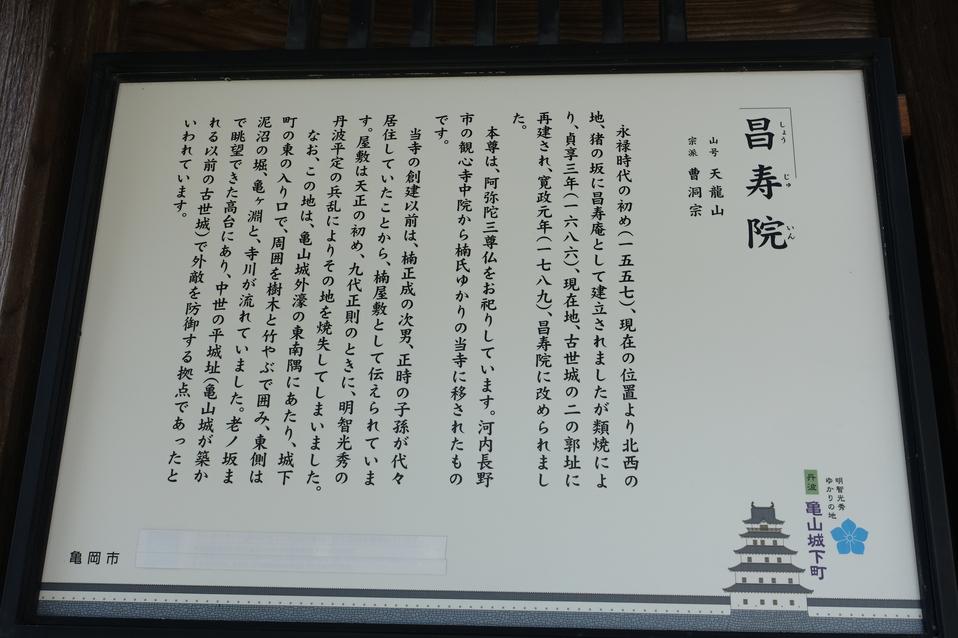 昌寿院
しょう じゅ いん
山号 天龍山
宗派 曹洞宗
永禄時代の初め(一五五七)、現在の位置より北西の
地、猪の坂に昌寿庵として建立されましたが類焼によ
り、貞享三年(一六八六)、現在地、古世城の二の郭址に
再建され、寛政元年(一七八九)、昌寿院に改められまし
た。
本尊は、阿弥陀三尊仏をお祀りしています。河内長野
市の観心寺中院から楠氏ゆかりの当寺に移されたもの
です。
当寺の創建以前は、楠正成の次男、正時の子孫が代々
居住していたことから、楠屋敷として伝えられていま
す。屋敷は天正の初め、九代正則のときに、明智光秀の
丹波平定の兵乱によりその地を焼失してしまいました。
なお、この地は、亀山城外濠の東南隅にあたり、城下
町の東の入り口で、周囲を樹木と竹やぶで囲み、東側は
泥沼の堀、亀ヶ淵と、寺川が流れていました。老ノ坂ま
で眺望できた高台にあり、中世の平城址(亀山城が築か
れる以前の古世城)で外敵を防御する拠点であったと
いわれています。
明智光秀
ゆかりの地
丹波
亀山城下町
亀岡市